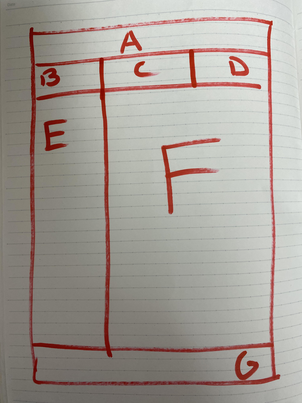 A
B C D
E
F
G